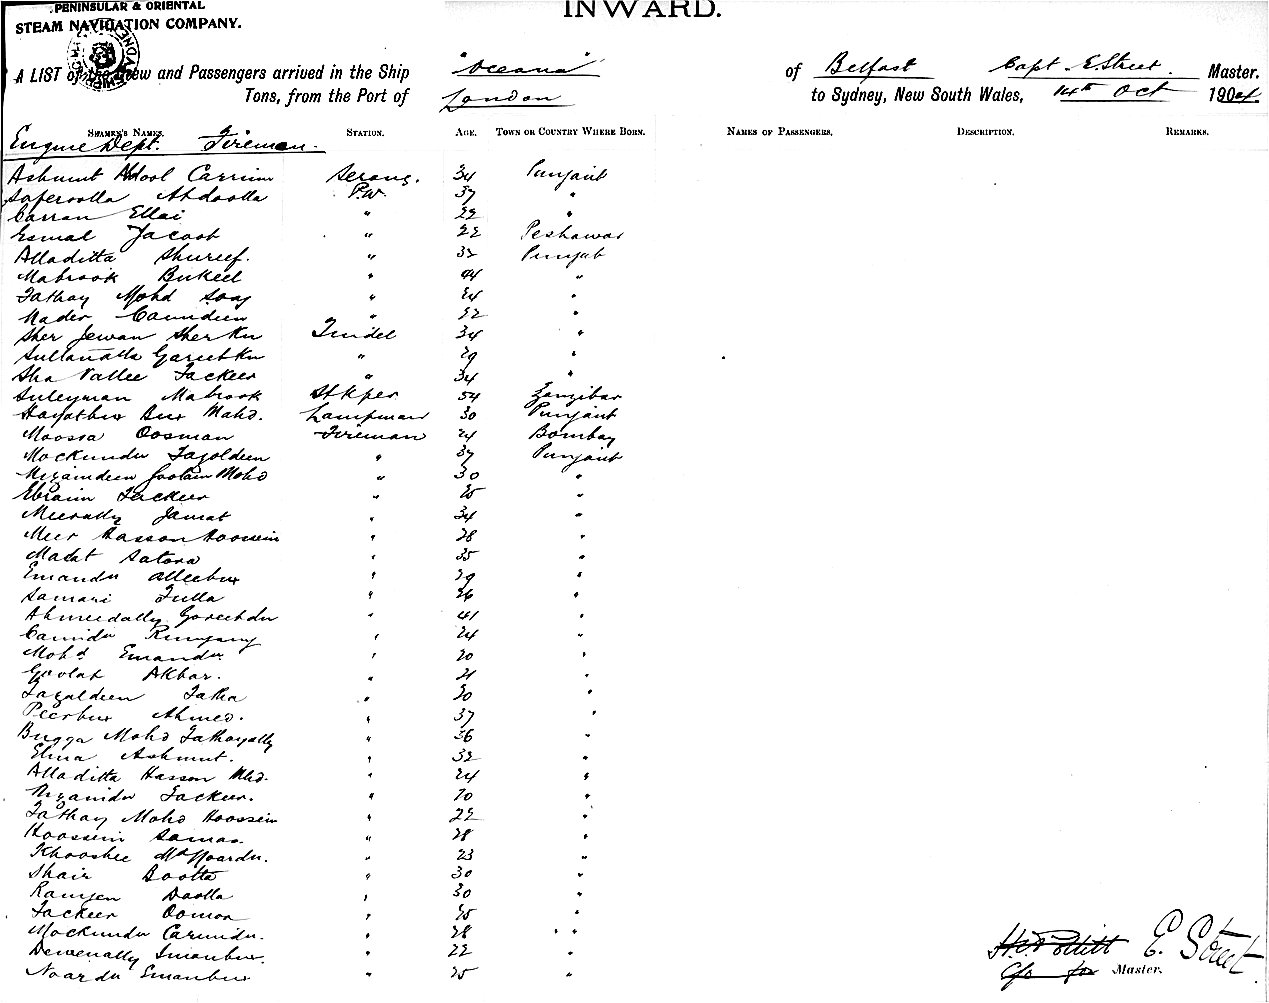 PENINSULAR & ORIENTAL
STEAM NAVIGATION COMPANY.
INWARD.
A LIST of the Crew and Passengers arrived in the Ship "Oceana" of Belfast Capt E. Street. Master.
Tons, from the Port of London to Sydney, New South Wales, 14th Oct 1904.
SEAMEN'S NAMES. STATION. AGE. TOWN OR COUNTRY WHERE BORN. NAMES OF PASSENGERS. DESCRIPTION. REMARKS.
Engine Dept. Fireman.
Ashmut Abdool Carrim Serang. 34 Punjaub
Saferoolla Abdoolla P.W. 37 "
Carran Ellai " 22 "
Esmal Jacoob " 22 Peshawar
Alladitta Shureef. " 32 Punjab
Mabrook Bukeet " 44 "
Fathay Mohd " 24 "
Mader Camdeen " 22 "
Sher Jewan Sher Kn Tindel 34 "
" 29 "
Sha Vallee Fackeer " 34 "
Suleyman Mabrook Stkper 54 Zanzibar
Bux Mahd. Lampman 30 Punjaub
Moossa Oosman Fireman 24 Bombay
Mockundu Fazoldeen " 37 Punjaub
Nizamdeen Goolam Mohd " 30 "
Ebraim Fackeer " 25 "
Meerally Jamat " 34 "
Meer Hassan Hoossein " 28 "
Madat Satora " 35 "
Emandu Alleebux " 29 "
Samani Fulla " 26 "
Ahmedally " 41 "
Camidu " 24 "
Mohd Emandu " 20 "
Goolab Akbar. " 21 "
Fazaldeen Fatha " 30 "
Peerbux Ahmed. " 37 "
Bugga Mohd Fathayally " 36 "
Elma Ashmut. " 32 "
Alladitta Hassan Mhd. " 24 "
Nizamdu Fackeer. " 20 "
Fathay Mohd Hoossein " 22 "
Hoossein " 28 "
Khooshee " 23 "
Shair Bootta " 30 "
Ramjen Daolla " 30 "
Fackeer Oomar " 25 "
Mockundu Carimdu. " 28 " "
Dewenally Imanbux. " 22 "
Noordu Emanbux " 25 "
E. Street
Master.